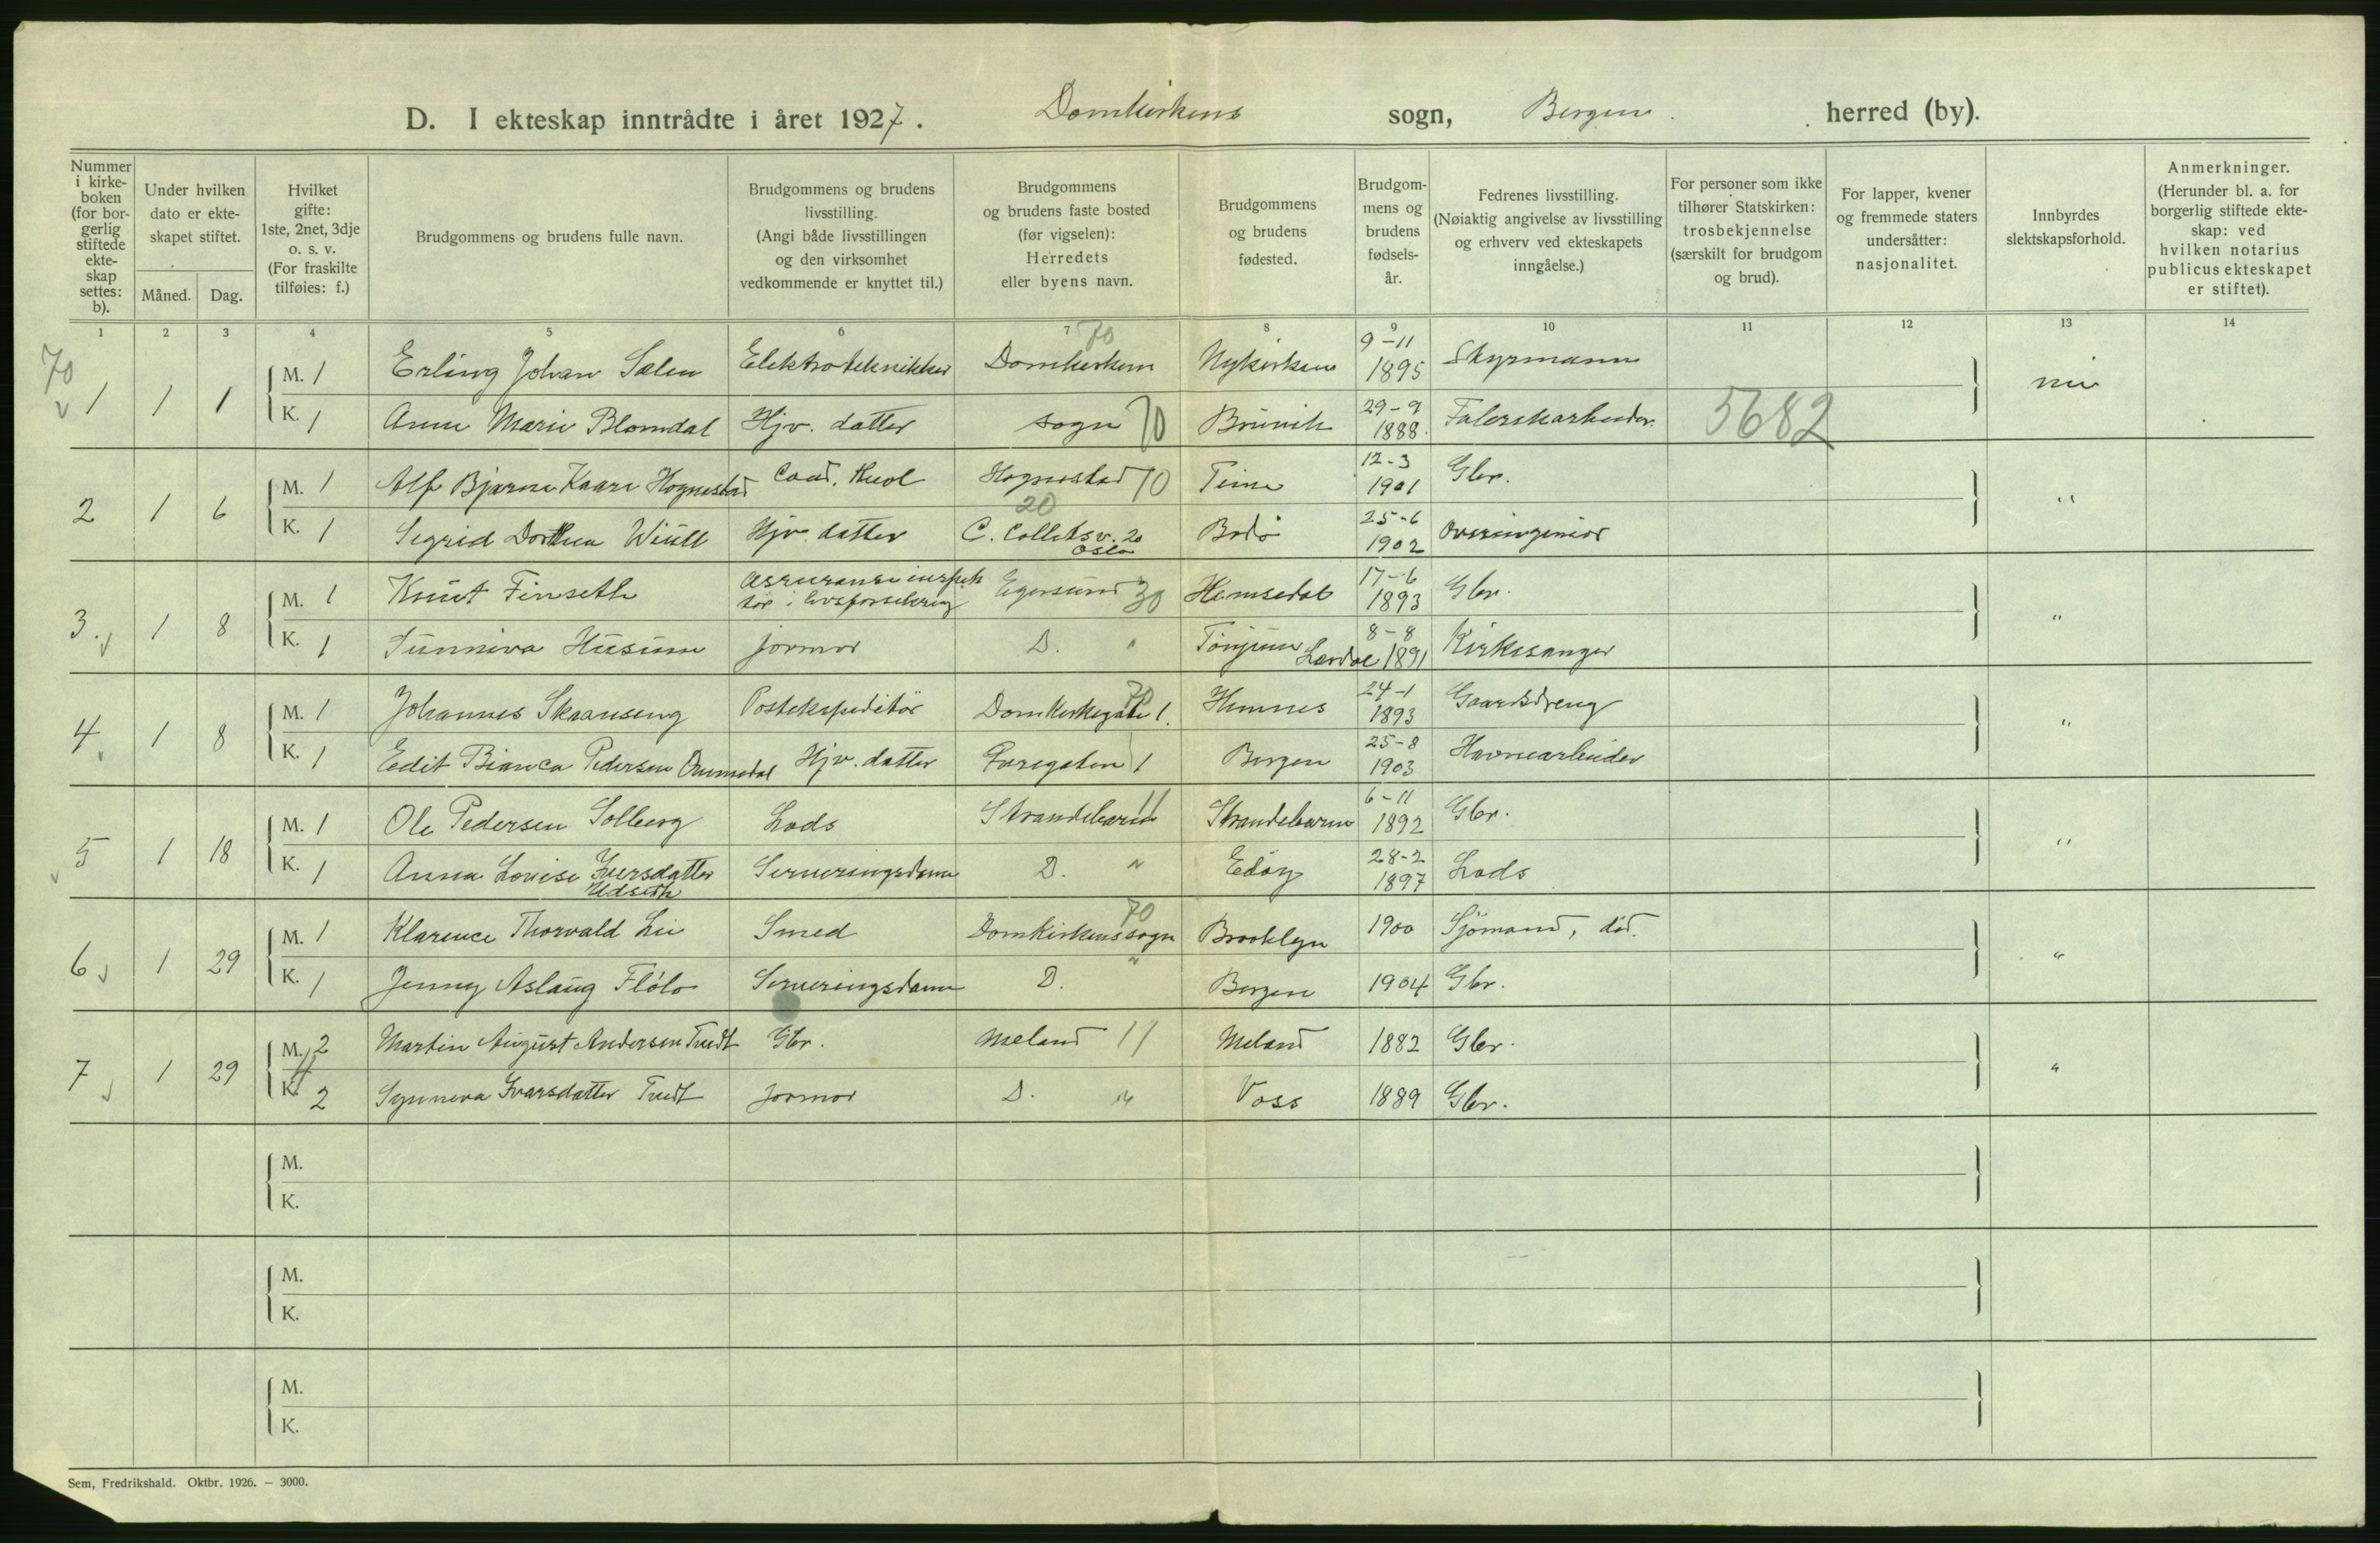 D. I ekteskap inntrådte i året 1927. Domkirkens sogn, Bergen herred (by).
Nummer i kirke-boken (for bor-gerlig stiftede ekte-skap settes: b).
Under hvilken dato er ekte-skapet stiftet.
Måned. Dag.
Hvilket gifte: 1ste, 2net, 3dje o. s. v. (For fraskilte tilføies: f.)
Brudgommens og brudens fulle navn.
Brudgommens og brudens livsstilling. (Angi både livsstillingen og den virksomhet vedkommende er knyttet til.)
Brudgommens og brudens faste bosted (før vigselen): Herredets eller byens navn.
Brudgommens og brudens fødested.
Brudgom-mens og brudens fødsels-år.
Fedrenes livsstilling. (Nøiaktig angivelse av livsstilling og erhverv ved ekteskapets inngåelse.)
For personer som ikke tilhører Statskirken: trosbekjennelse (særskilt for brudgom og brud).
For lapper, kvener og fremmede staters undersåtter: nasjonalitet.
Innbyrdes slektskapsforhold.
Anmerkninger. (Herunder bl. a. for borgerlig stiftede ekte-skap: ved hvilken notarius publicus ekteskapet er stiftet).
1 2 3 4 5 6 7 8 9 10 11 12 13 14
70 70
1 1 1 M. 1 Erling Johan Sælen Elektrotekniker Domkirkens Nykirken 9-11 1895 Styrmann
K. 1 Anne Marie Blomdal Hjv. datter sogn 70 29-9 1888. 5682
2 1 6 M. 1 Alf Bjarne Kaare Hognestad Cand. theol Hognestad 70 Time 12-3 1901 Gbr. "
20
K. 1 Sigrid Dorthea Wiull Hjv. datter C. Colletsv. 20 Oslo Bodø 25-6 1902 Overingeniør
3. 1 8 M. 1 Knut Finseth Assuranseinspektør i livsforsikring Egersund 30 Hemsedal 17-6 1893 Gbr. "
K. 1 Sunniva Husum Jormor D. " Tønjum Lærdal 8-8 1891 Kirkesanger
4 1 8 M. 1 Johannes Skranseng Postekspeditör Domkirkegate 1. 70 Hemnes 24-1 1893 Gaardsdreng "
K. 1 Edit Bianca Pedersen Hjv. datter 1 Bergen 25-8 1903 Havnearbeider
5 1 18 M. 1 Ole Pedersen Solberg Lods Strandebarm 11 Strandebarm 6-11 1892 Gbr. "
K. 1 Anna Lovise Iversdatter Udseth Serveringsdame D. " Edøy 28-2 1897 Lods
6 1 29 M. 1 Klarence Thorvald Lie Smed Domkirkens sogn 70 Brooklyn 1900 Sjömand, död. "
K. 1 Jenny Aslaug Flölo Serveringsdame D. " Bergen 1904 Gbr.
7 1 29 M. 2 Martin August Andersen Tvedt Gbr. Meland 11 Meland 1882 Gbr. "
K. 2 Synneva Ivarsdatter Tvedt Jormor D. " Voss 1889 Gbr.
M.
K.
M.
K.
M.
K.
Sem, Fredrikshald. Oktbr. 1926. — 3000.